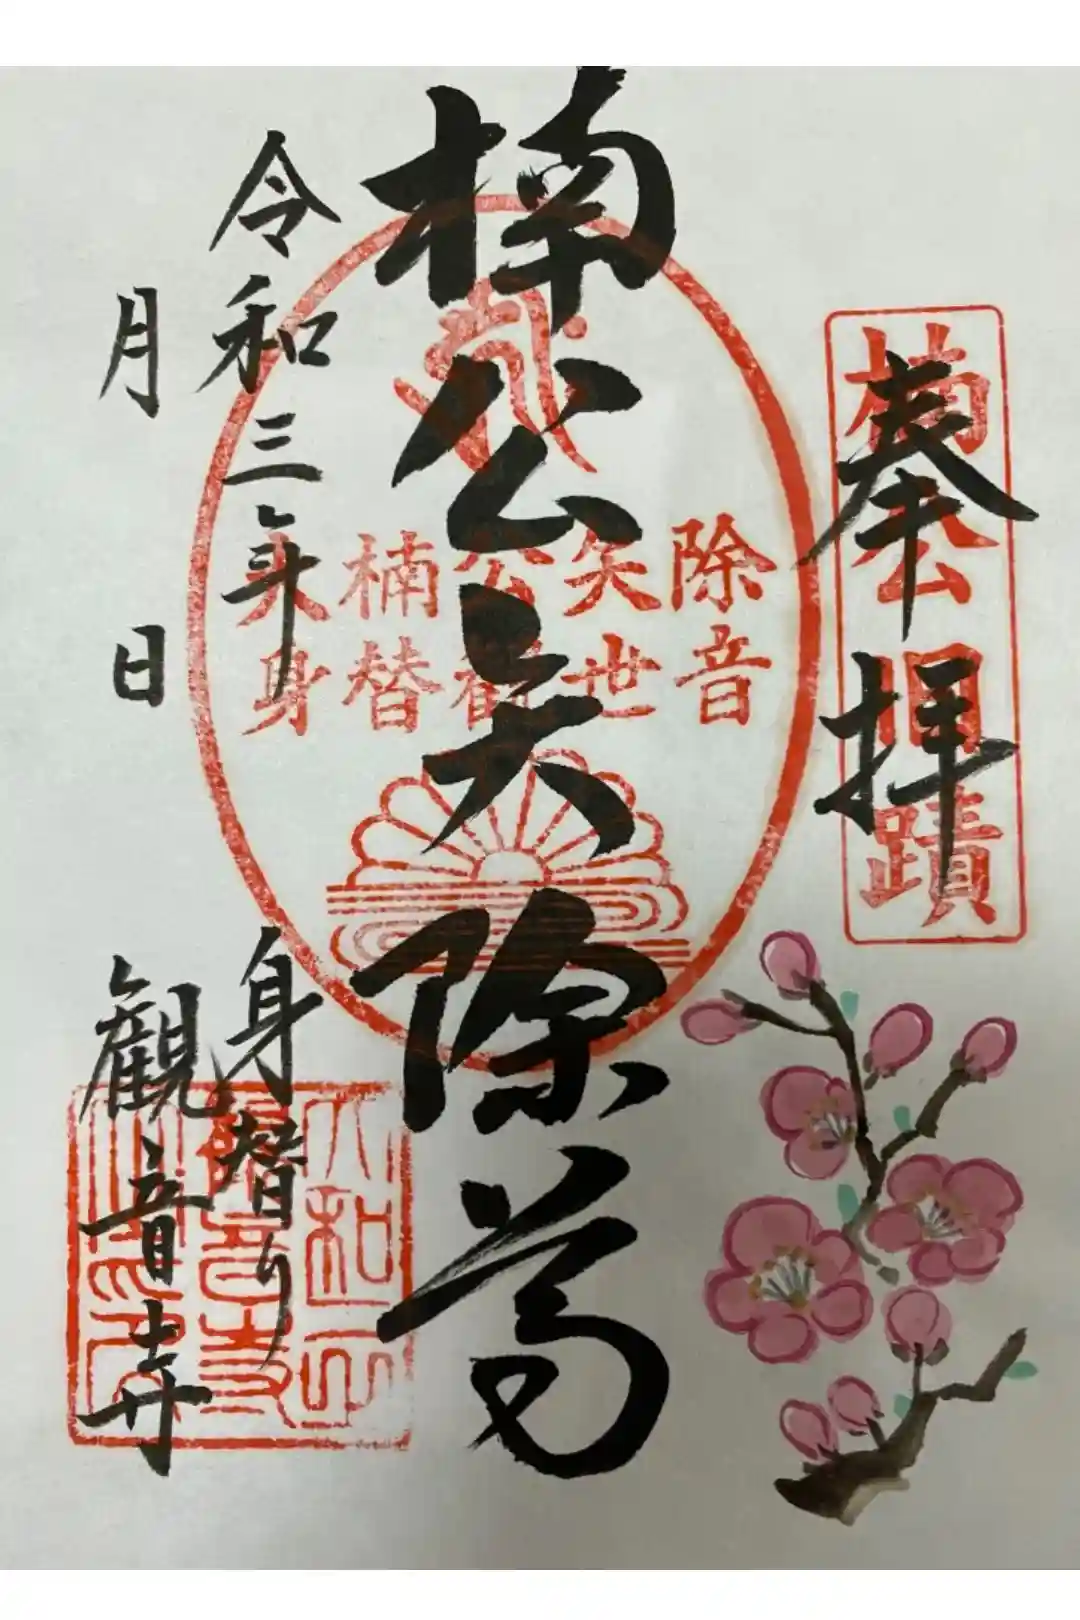 奉拝
楠公蹟
楠公矢除尊
大楠公矢除
身替観世音
令和三年
月 日
身替り
観音寺